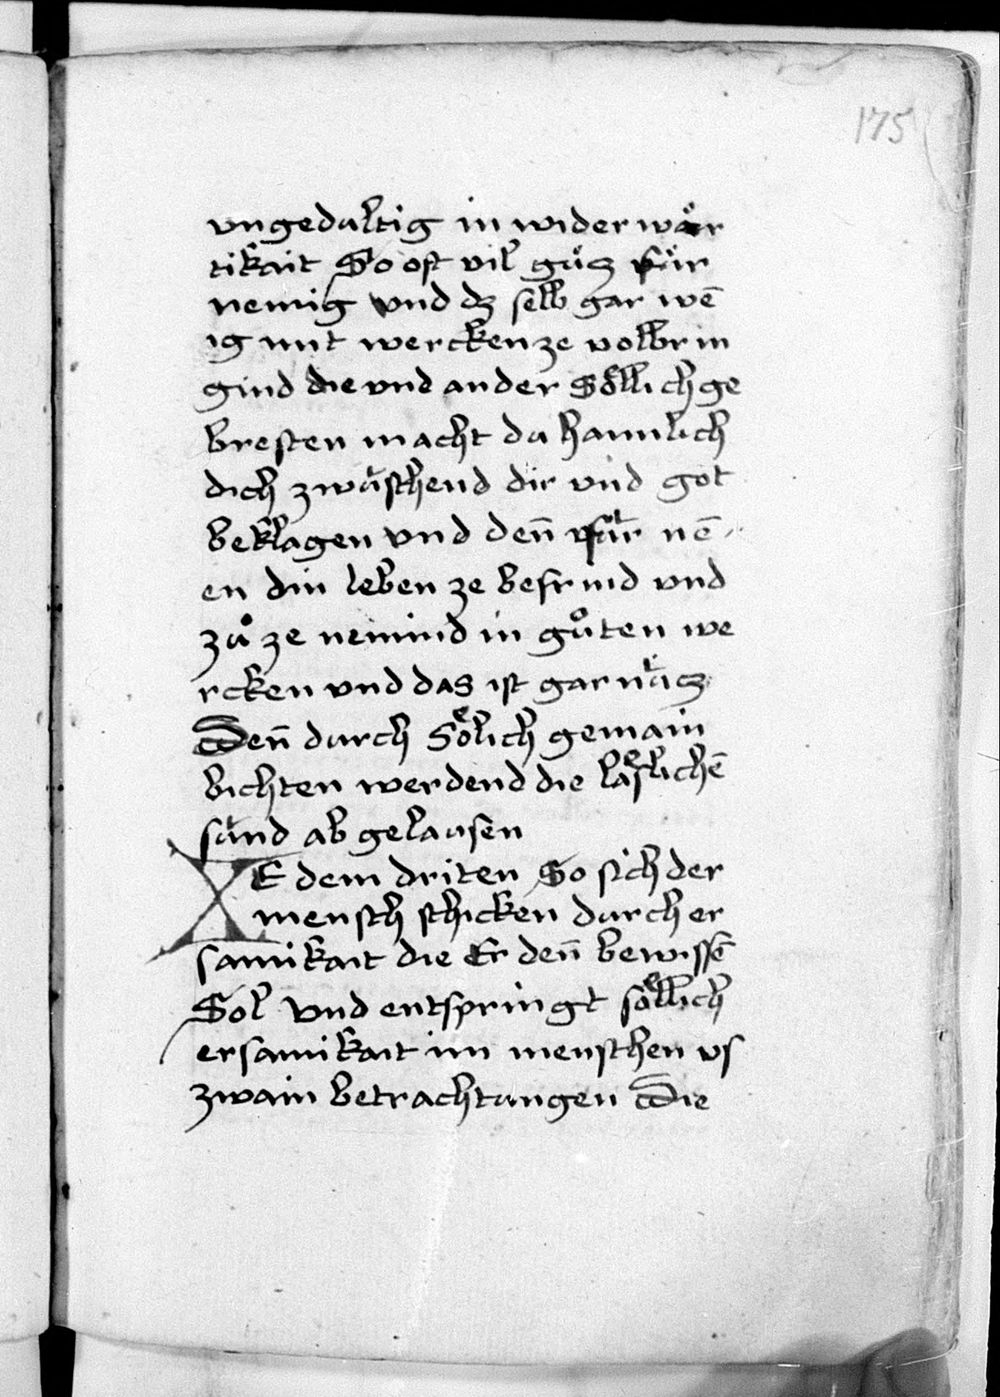 175
vngedultig in wider wär
tikait So oft vil gůcz für
nemig vnd dz selb gar wē
ig mit wercken ze volbrin
gind die vnd ander Sölli ch ge
bresten macht du haimlich
dich zwüschend dir vnd got
beklagen vnd den̄ für nē
en din leben ze besrind vnd
zů ze nemind in gůten we
rcken vnd das ist gar nücz
Den̄ durch Sölich gemain
bichten werdend die läslichē
sünd ab gelausen
ZE dem driten So sich der
mensch schicken durch er
samikait die Er den̄ bewissē
Sol vnd entspringt söllich
ersamikait im menschen vs
zwain betrachtungen Die